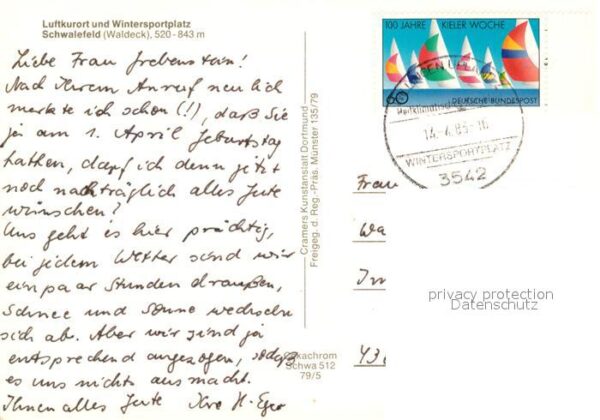 Luftkurort und Wintersportplatz
Schwalefeld (Waldeck), 520-843 m
Liebe Frau Grebenstein!
Nach Ihrem Anruf neulich
merkte ich schon (!), daß Sie
ja am 1. April Geburtstag
hatten, darf ich denn jetzt
noch nachträglich alles Gute
wünschen?
Uns geht es hier prächtig,
bei jedem Wetter sind wir
ein paar Stunden draußen,
Schnee und Sonne wechseln
sich ab. Aber wir sind ja
entsprechend angezogen, sodaß
es uns nichts ausmacht.
Ihnen alles Gute Ihre H.
Cramers Kunstanstalt Dortmund
Freigeg. d. Reg.-Präs. Münster 135/79
Cekachrom
Schwa 512
79/5
100 JAHRE KIELER WOCHE
60 DEUTSCHE BUNDESPOST
WINTERSPORTPLATZ
3542
Frau
Wa
Im
43
privacy protection
Datenschutz